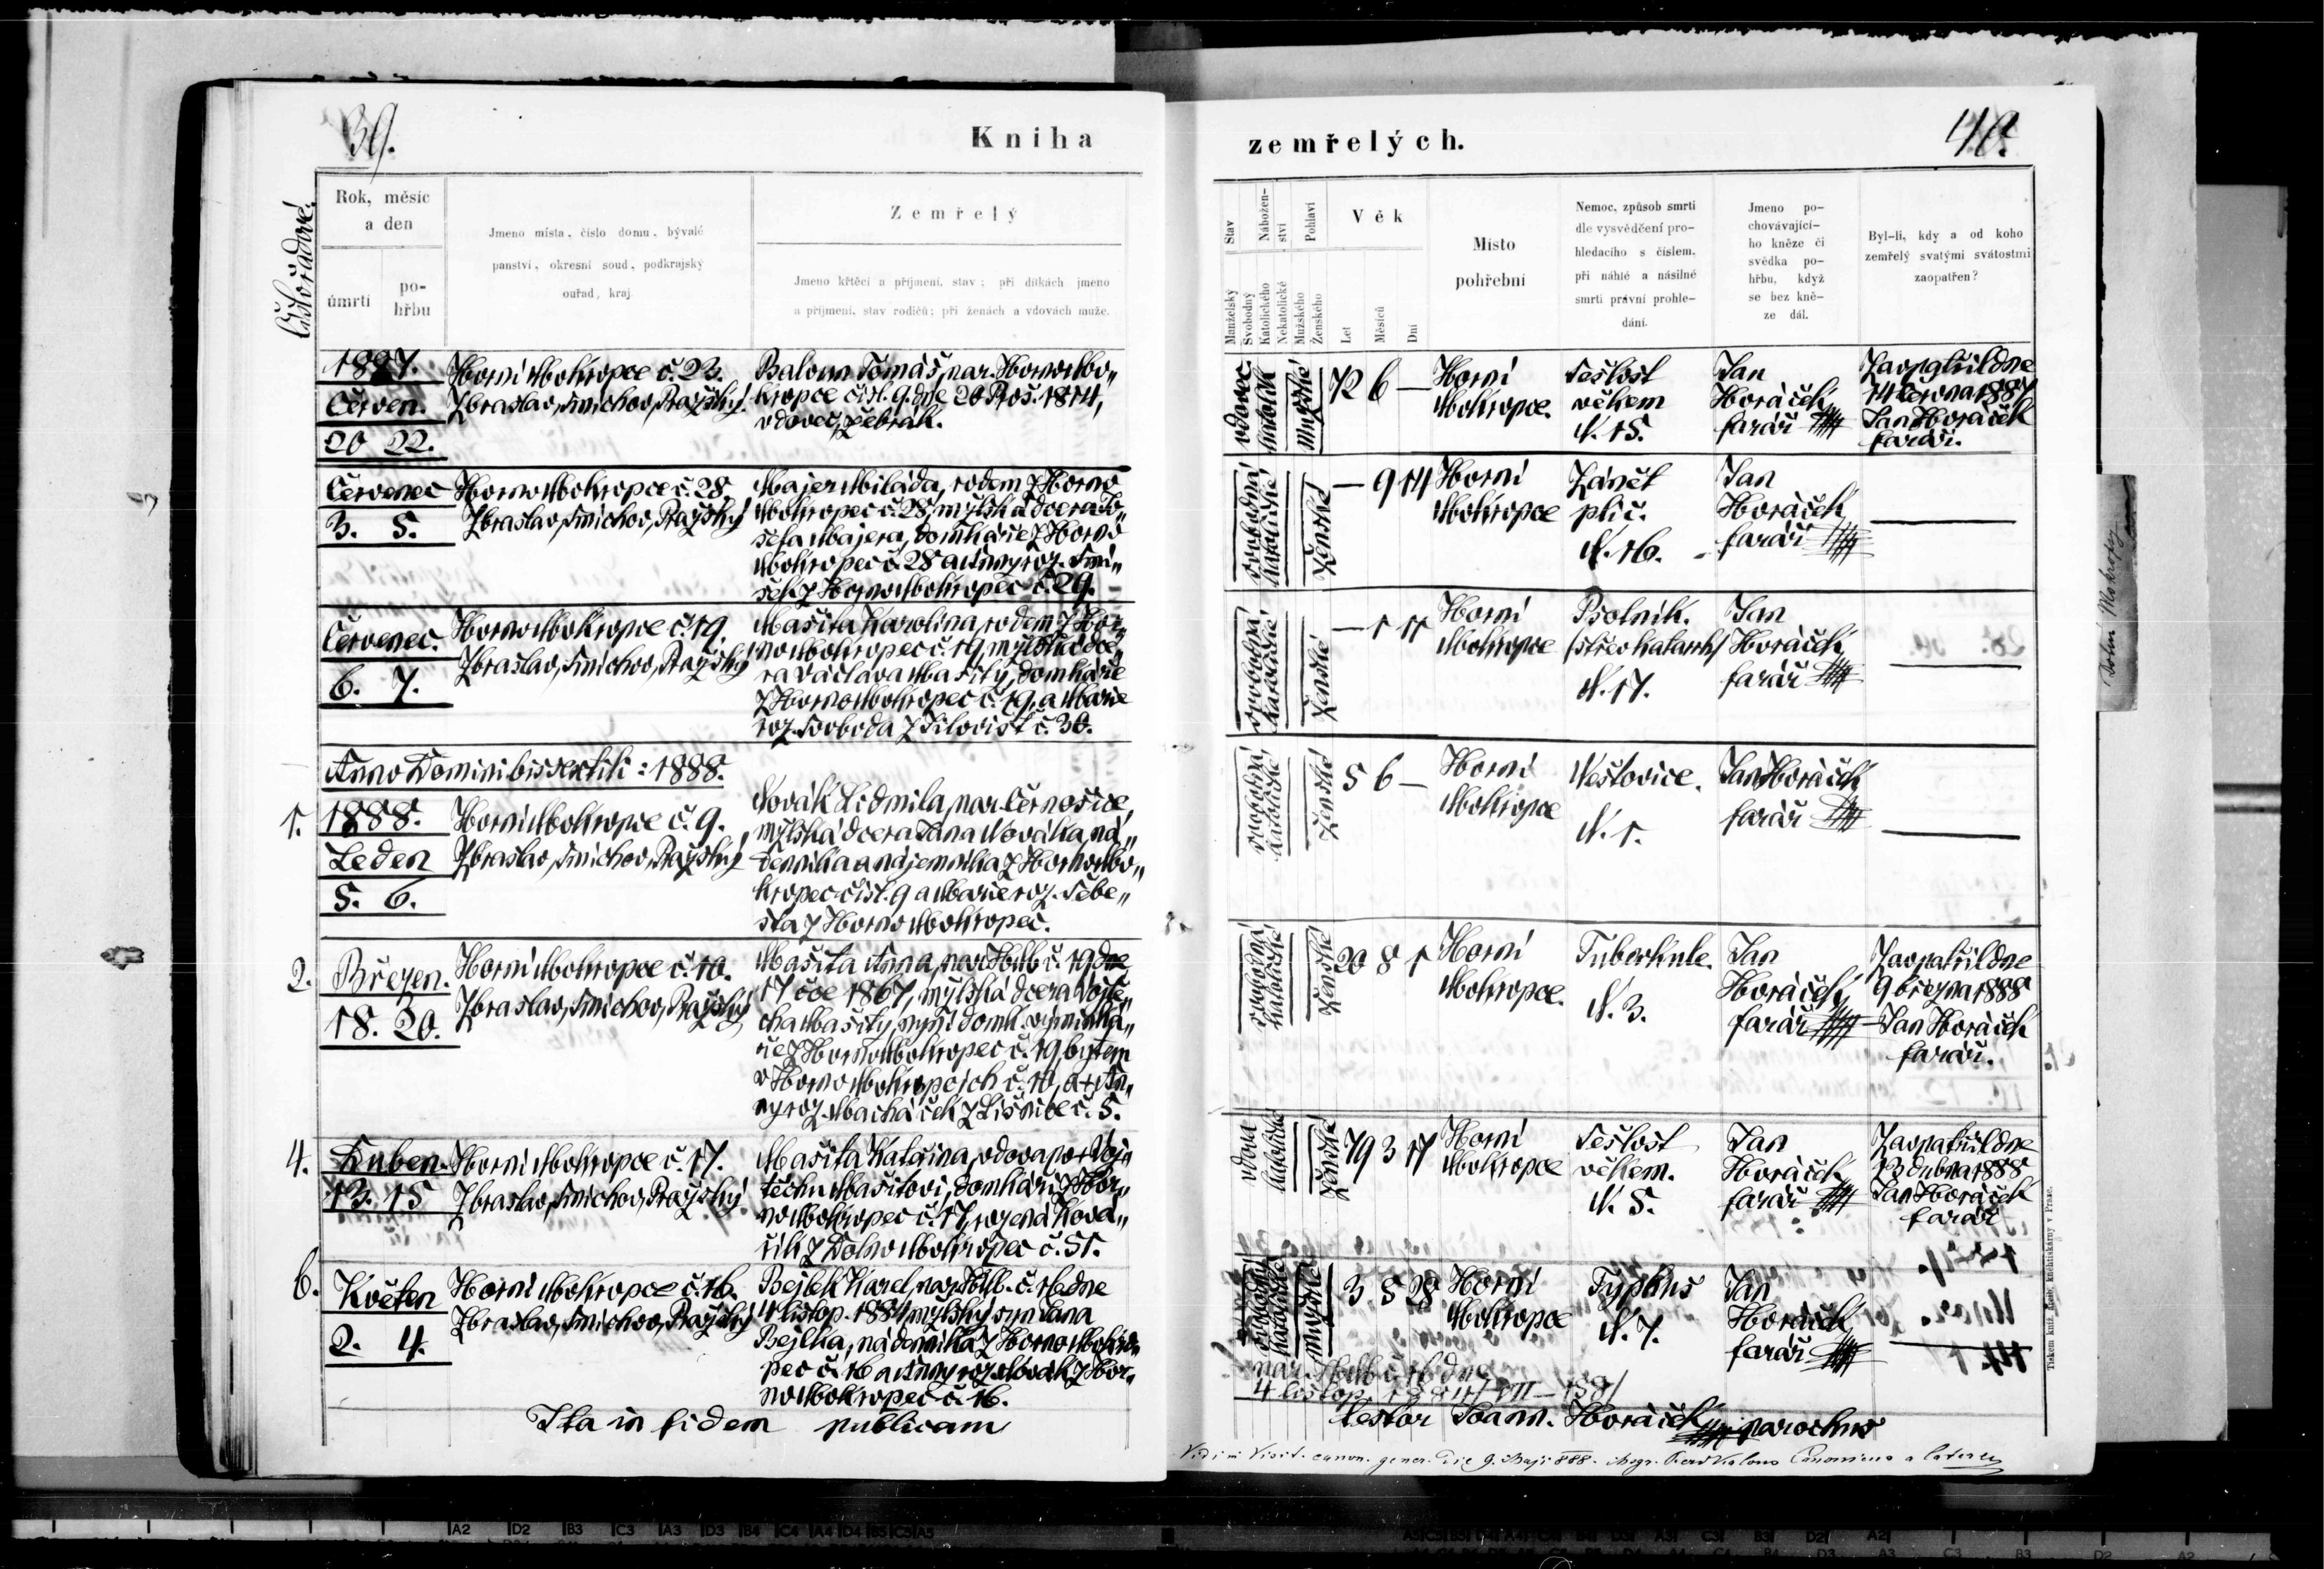 39.
Kniha
zemřelých.
40.
Číslo řadové.
Rok, měsíc
a den
úmrtí
po-
hřbu
Jmeno místa, číslo domu, bývalé
panství, okresní soud, podkrajský
ouřad, kraj
Zemřelý
Jmeno křtěcí a příjmení, stav; při dítkách jmeno
a příjmení, stav rodičů; při ženách a vdovách muže.
Stav
Manželský
Svobodný
Nábožen-
ství
Katolického
Nekatolické
Pohlaví
Mužského
Ženského
Věk
Let
Měsíců
Dní
Místo
pohřební
Nemoc, způsob smrti
dle vysvědčení pro-
hledacího s číslem,
při náhlé a násilné
smrti právní prohle-
dání.
Jmeno po-
chovávající-
ho kněze či
svědka po-
hřbu, když
se bez kně-
ze dál.
Byl-li, kdy a od koho
zemřelý svatými svátostmi
zaopatřen?
1887.
Červen.
20 22.
Horní Mokropce č. 23.
Zbraslav, Smíchov, Pražský.
Baloun Tomáš, nar. Horno Mo„
kropce čísl. 9. dne 20 Pros. 1814,
vdovec, žebrák.
vdovec
katolík
mužské
72 6 —
Horní
Mokropce.
Sešlost
věkem
N. 15.
Jan
Horáček,
farář
Zaopatřil dne
14 června 1887
Jan Horáček
farář.
Červenec
3. 5.
Horno Mokropce č. 28,
Zbraslav, Smíchov, Pražský
Majer Milada, rodem z Horno
Mokropec č. 28, mžlská dcera Jo„
sefa Majera, domkáře z Horno
Mokropec č. 28 a Anny roz. Smí„
šek z Horno Mokropec č. 29.
svobodná
katolické
ženské
— 9 14
Horní
Mokropce
Zánět
plic.
N. 16.
Jan
Horáček
farář
Červenec.
6. 7.
Horno Mokropce č. 19.
Zbraslav, Smíchov, Pražský
Mašita Karolina, rodem z Hor„
no Mokropec č. 19, mžlská dce„
ra Václava Mašity, domkáře
z Horno Mokropec č. 19, a Marie
roz. Svoboda z Jíloviště č. 30.
svobodná
katolické
ženské
— 1 11
Horní
Mokropce
Psotník.
(střev. katarrh)
N. 17.
Jan
Horáček,
farář
Anno Domini bissextili: 1888.
1.
1888.
Leden
5. 6.
Horní Mokropce č. 9.
Zbraslav, Smíchov, Pražský
Novák Lidmila, nar. Černošice,
mžlská dcera Jana Nováka, ná„
deníka a nájemníka z Horno Mo„
kropec čísl. 9 a Marie roz. Šebe„
sta z Horno Mokropec.
svobodná
katolické
ženské
5 6 —
Horní
Mokropce
Neštovice.
N. 1.
Jan Horáček
farář
2.
Březen.
18. 20.
Horní Mokropce č. 10.
Zbraslav, Smíchov, Pražský
Mašita Anna, nar. HMb č. 19 dne
17 čce 1867, mžlská dcera Vojtě„
cha Mašity, nyní domk. výminká„
ře z Horno Mokropec č. 19 bytem
v Horno Mokropcích č. 10, a + An„
ny roz. Macháček z Líšnice č. 5.
svobodná
katolické
ženské
20 8 1
Horní
Mokropce.
Tuberkule.
N. 3.
Jan
Horáček,
farář
Zaopatřil dne
9 března 1888
Jan Horáček
farář.
4.
Duben.
13. 15
Horní Mokropce č. 17.
Zbraslav, Smíchov, Pražský
Mašita Kateřina, vdova po + Voj„
těchu Mašitovi, domkáři z Hor„
no Mokropec č. 17, rozená Kova„
řík z Dolno Mokropec č. 51.
vdova
katolické
ženské
79 3 17
Horní
Mokropce
Sešlost
věkem.
N. 5.
Jan
Horáček
farář
Zaopatřil dne
13 dubna 1888
Jan Horáček
farář
6.
Květen
2. 4.
Horní Mokropce č. 16.
Zbraslav, Smíchov, Pražský
Bejlek Karel, nar. HMb. č. 16 dne
4 listop. 1884 mžlský syn Jana
Bejlka, nádeníka z Horno Mokro„
pec č. 16 a Anny roz. Novák z Hor„
no Mokropec č. 16.
svobodný
katolické
mužské
3 5 28
Horní
Mokropce
Typhus
N. 7.
Jan
Horáček,
farář
nar. HMb č. 16 dne
4 listop. 1884
Ita in fidem publicam
testor Joann. Horáček, parochus
Vidi in Visit. canon. gener. die 9. Maji 888.
Tiskem kníž. arcib. knihtiskárny v Praze.
Dolní Mokropsy